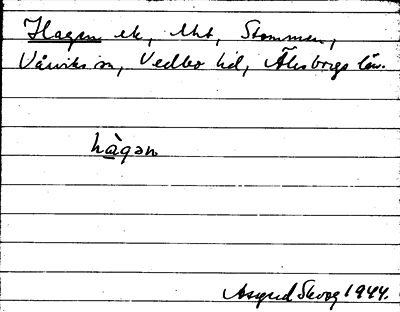 Hagen ek, lht, Stommen,
Vårviks sn, Vedbo hd, Älvsborgs län.
hàgan
Astrid Skoog 1944.